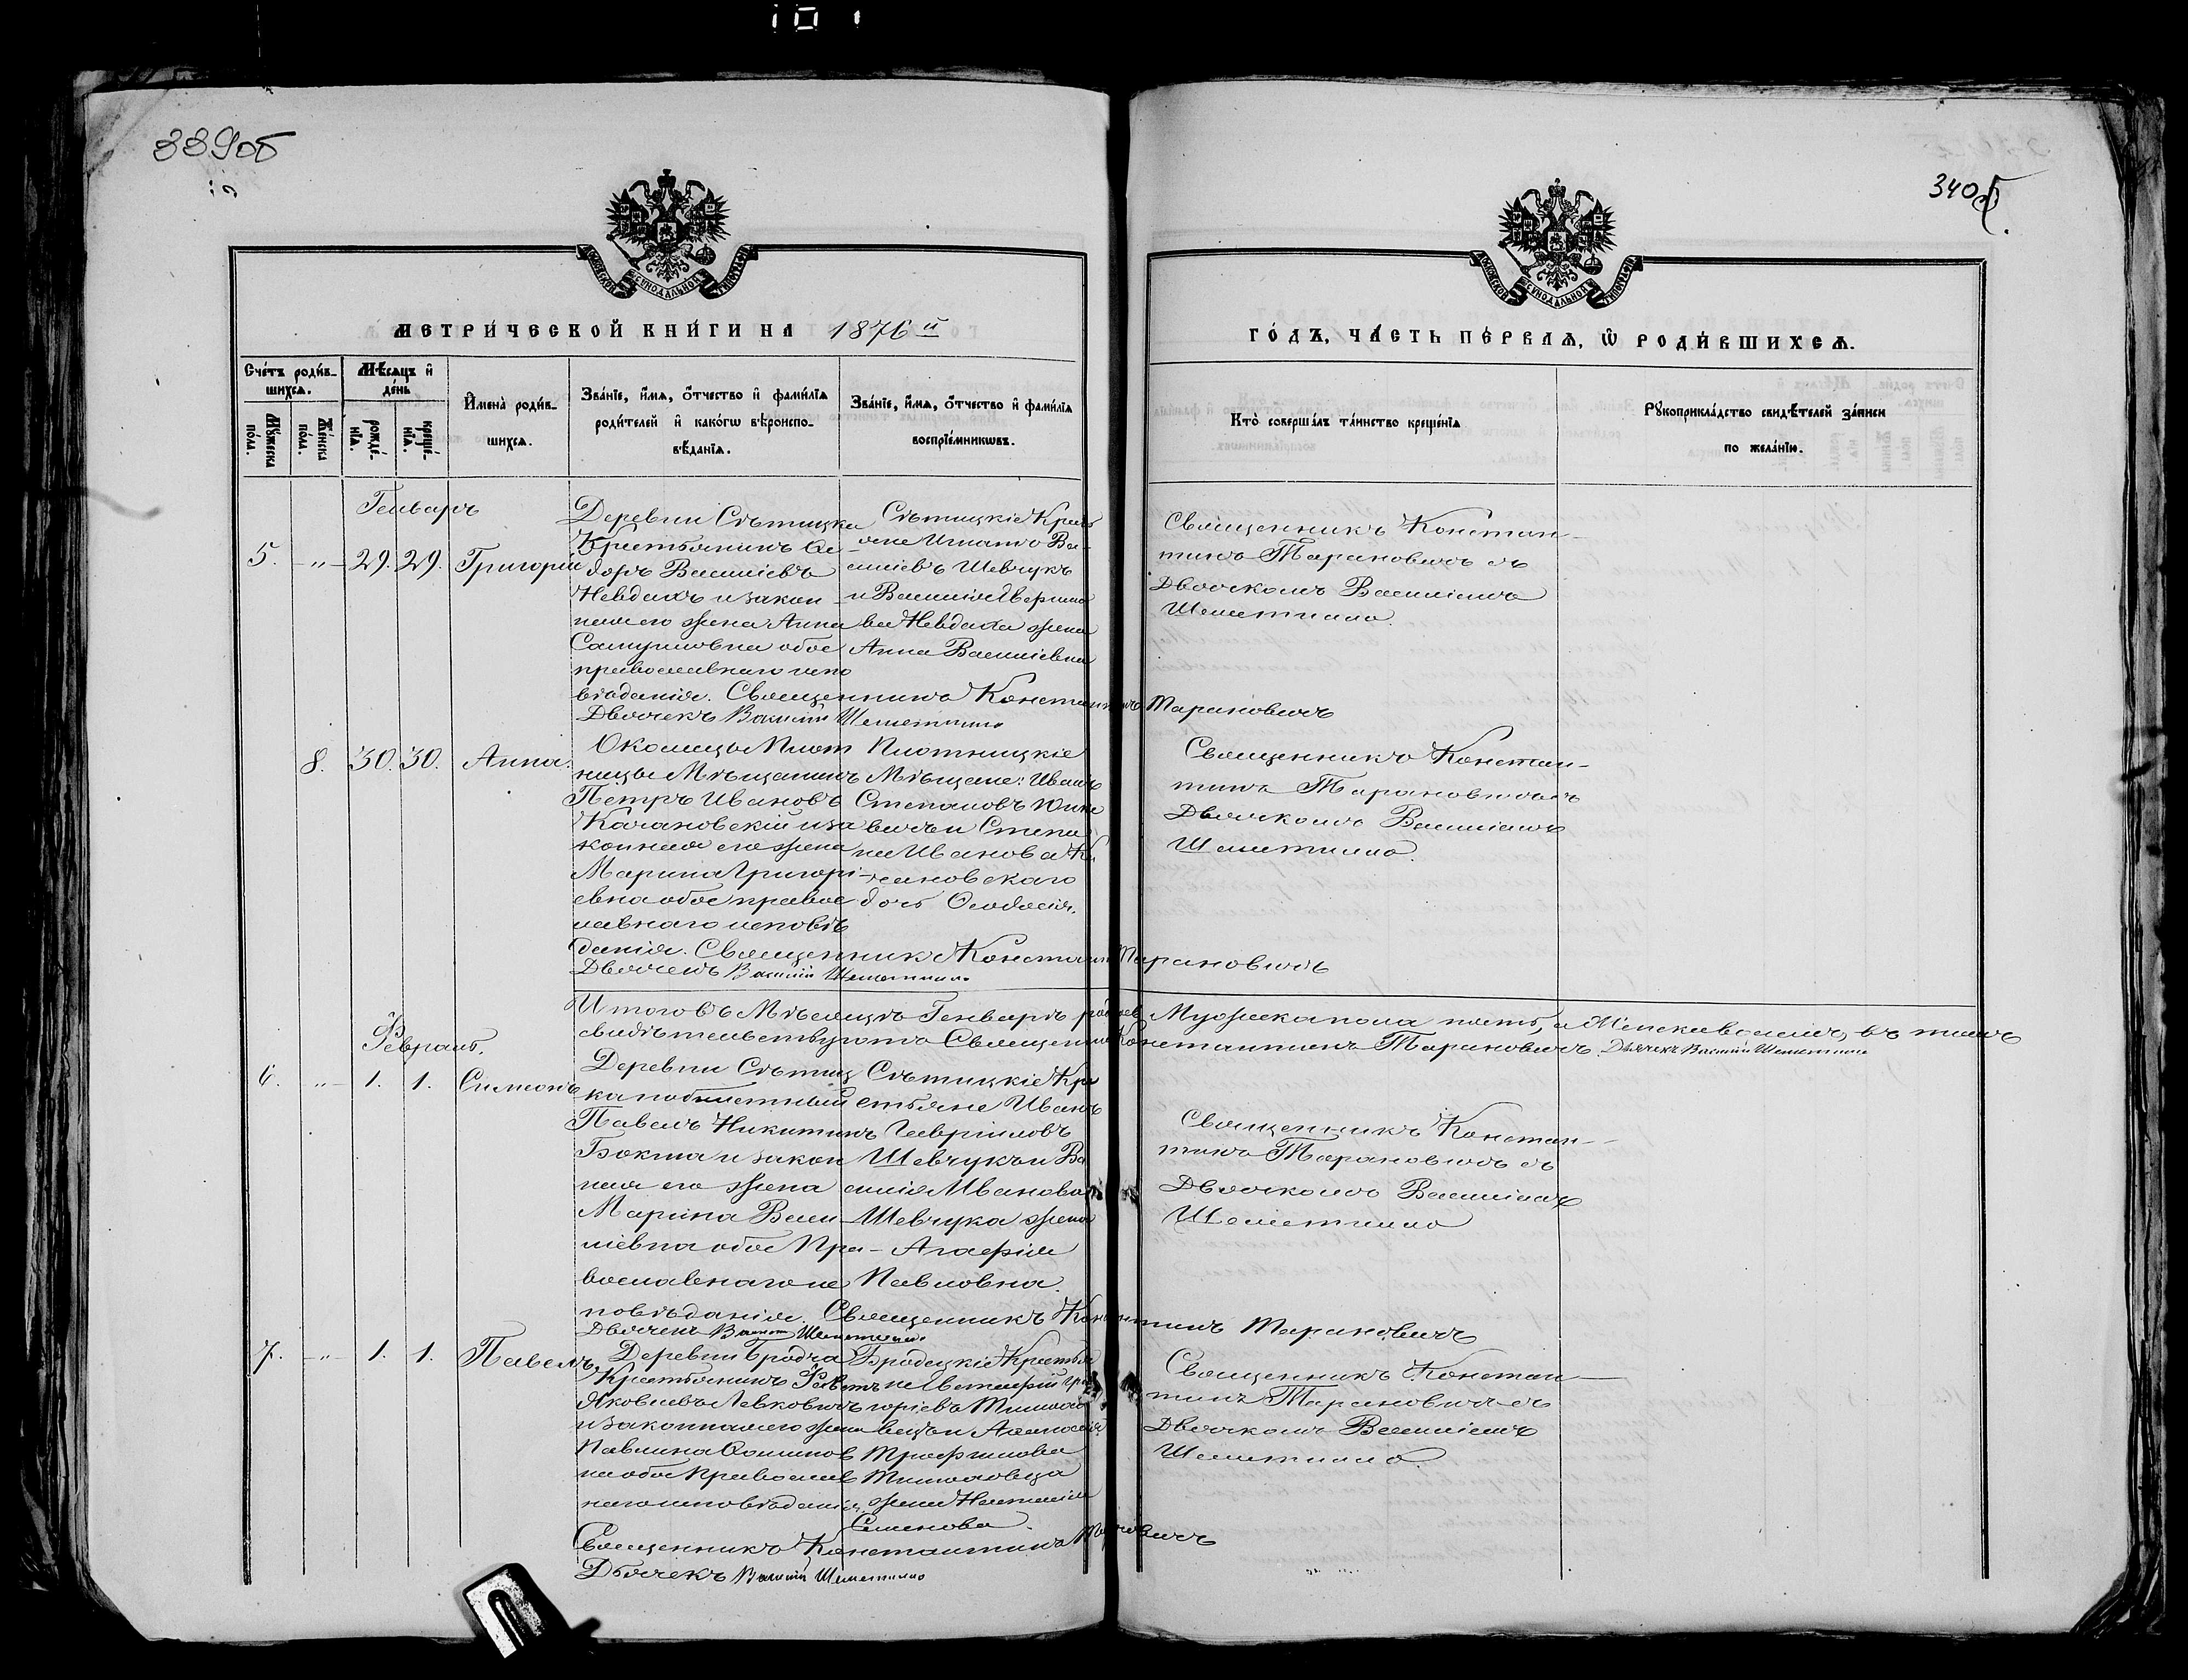 339об
340
МОСКОВСКОЙ СѴНОДАЛЬНОЙ ТИПОГРАФІИ
МОСКОВСКОЙ СѴНОДАЛЬНОЙ ТИПОГРАФІИ
МЕТРИ́ЧЕСКОЙ КНИ́ГИ НА 1876 й
ГО́ДЪ, ЧА́СТЬ ПЕ́РВАѦ, Ѿ РОДИ́ВШИХСѦ.
Сче́тъ роди́в-
шихсѧ.
Мꙋ́жеска по́ла.
Же́нска по́ла.
Мѣ́сѧцъ и҆ де́нь
рожде́-нїѧ.
креще́-нїѧ.
И҆мена̀ роди́в-
шихсѧ.
Зва́нїе, и҆́мѧ, ѻ҆́тчество и҆ фами́лїѧ
роди́телей и҆ како́гѡ вѣроиспо-
вѣ́данїѧ.
Зва́нїе, и҆́мѧ, ѻ҆́тчество и҆ фами́лїѧ
воспрїе́мникѡвъ.
Кто̀ соверша́лъ та́инство креще́нїѧ
Рꙋкоприкла́дство свидѣ́телей за́писи
по жела́нїю.
Генварь
5. " 29. 29. Григорій
Деревни Сѣтицка
Крестьянинъ Ѳе-
доръ Василіевъ
Невдахъ и закон-
ная его жена Анна
Самуиловна обое
православнаго испо
вѣданія. Священникъ Константинъ Тарановичъ
Дьячекъ Василій Шеметилло
Сѣтицкіе Крест
яне Игнатъ Ва-
силіевъ Шевчукъ
и Василія
ва Невдаха жена
Анна Василіевна
Священникъ Констан-
тинъ Тарановичъ съ
Дьячкомъ Василіемъ
Шеметилло.
8. 30. 30. Анна.
Околицы Плот
ницы Мѣщанинъ
Петръ Ивановъ
Качановскій и за
конная его жена
Марина Григорі-
евна обое правос
лавнаго исповѣ
данія. Священникъ Константинъ Тарановичъ
Дьячекъ Василій Шеметилло
Плотницкіе
Мѣщане: Иванъ
Степановъ
вичъ и Степа
на Иванова Ка
чановскаго
дочь Ѳеодосія.
Священникъ Констан-
тинъ Тарановичъ съ
Дьячкомъ Василіемъ
Шеметилло.
Итого въ Мѣсяцѣ Генварѣ Мужеска пола пять, а Женска восемь, въ томъ
свидѣтельствуютъ Священникъ Константинъ Тарановичъ. Дьячекъ Василій Шеметилло
Февраль.
6. " 1. 1. Симеонъ
Деревни Сѣтиц
ка
Павелъ Никитинъ
Бокша и закон
ная его жена
Марина Васи-
ліевна обое Пра-
вославнаго ис
повѣданія. Священникъ Константинъ Тарановичъ
Дьячекъ Василій Шеметилло
Сѣтицкіе Кре
стьяне Иванъ
Гавріиловъ
Шевчукъ и Ва
силія Иванова
Шевчука жена
Агафія
Павловна.
Священникъ Констан-
тинъ Тарановичъ съ
Дьячкомъ Василіемъ
Шеметилло
7. " 1. 1. Павелъ
Деревни Бродча
Крестьянинъ
Яковлевъ Левковичъ
и законная его жена
Павлина Осипов
на обое Православ
наго исповѣданія.
Священникъ Константинъ Тарановичъ
Дьячекъ Василій Шеметилло
Бродецкіе Крестья
не Евстафій Гри
горіевъ
вецъ и
Трофимова
жена Наталія
Семенова.
Священникъ Констан-
тинъ Тарановичъ съ
Дьячкомъ Василіемъ
Шеметилло